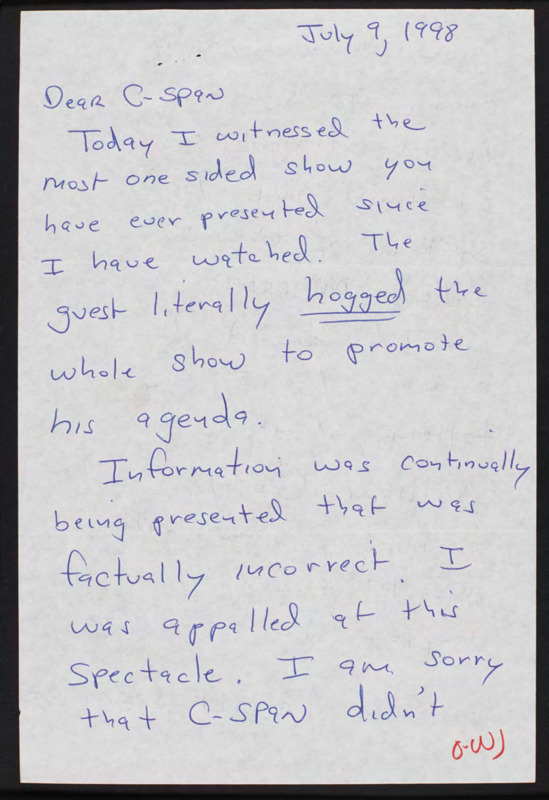 July 9, 1998
Dear C-SPAN
Today I witnessed the
most one sided show you
have ever presented since
I have watched. The
guest literally hogged the
whole show to promote
his agenda.
Information was continually
being presented that was
factually incorrect. I
was appalled at this
Spectacle. I am sorry
that C-SPAN didn't